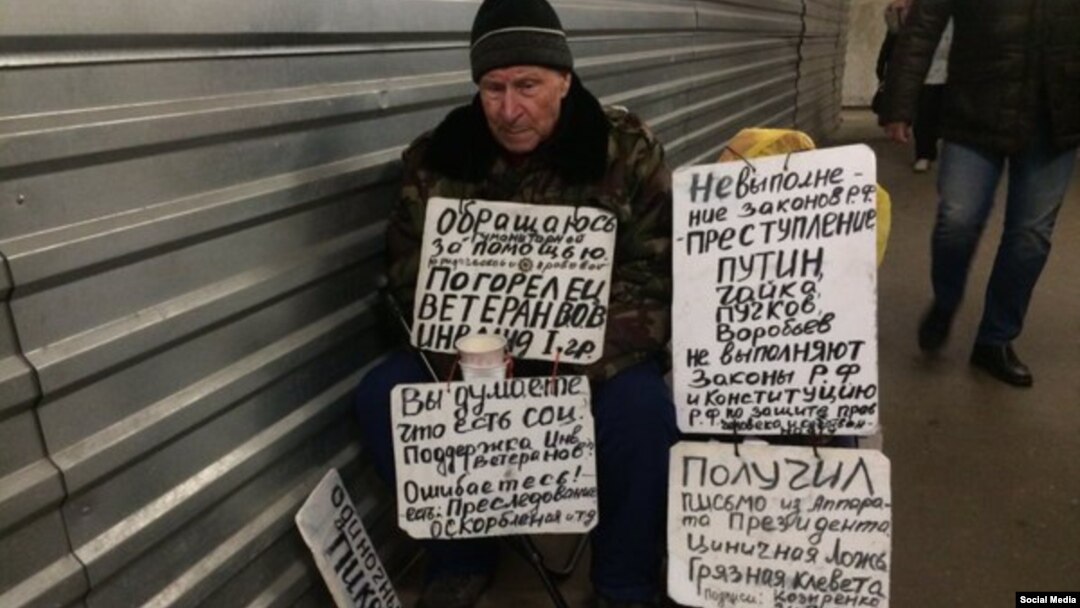 Обращаюсь
гуманитарной
за помощью.
юридической и правовой
Погорелец
ВЕТЕРАН В.О.В
инвалид I. гр.
Вы думаете
что есть соц.
Поддержка Инв.
ветеранов?
Ошибаетесь!
есть: Преследование
оскорбления и т.д
Невыполне-
ние законов Р.Ф.
-ПРЕСТУПЛЕНИЕ
ПУТИН,
чайка,
пучков,
Воробьев
не выполняют
Законы Р.Ф
и Конституцию
Р.Ф по защите прав
человека и
Получил
письмо из Аппара-
та Президента.
Циничная Ложь
Грязная клевета
Подписи: Козыренко
Social Media